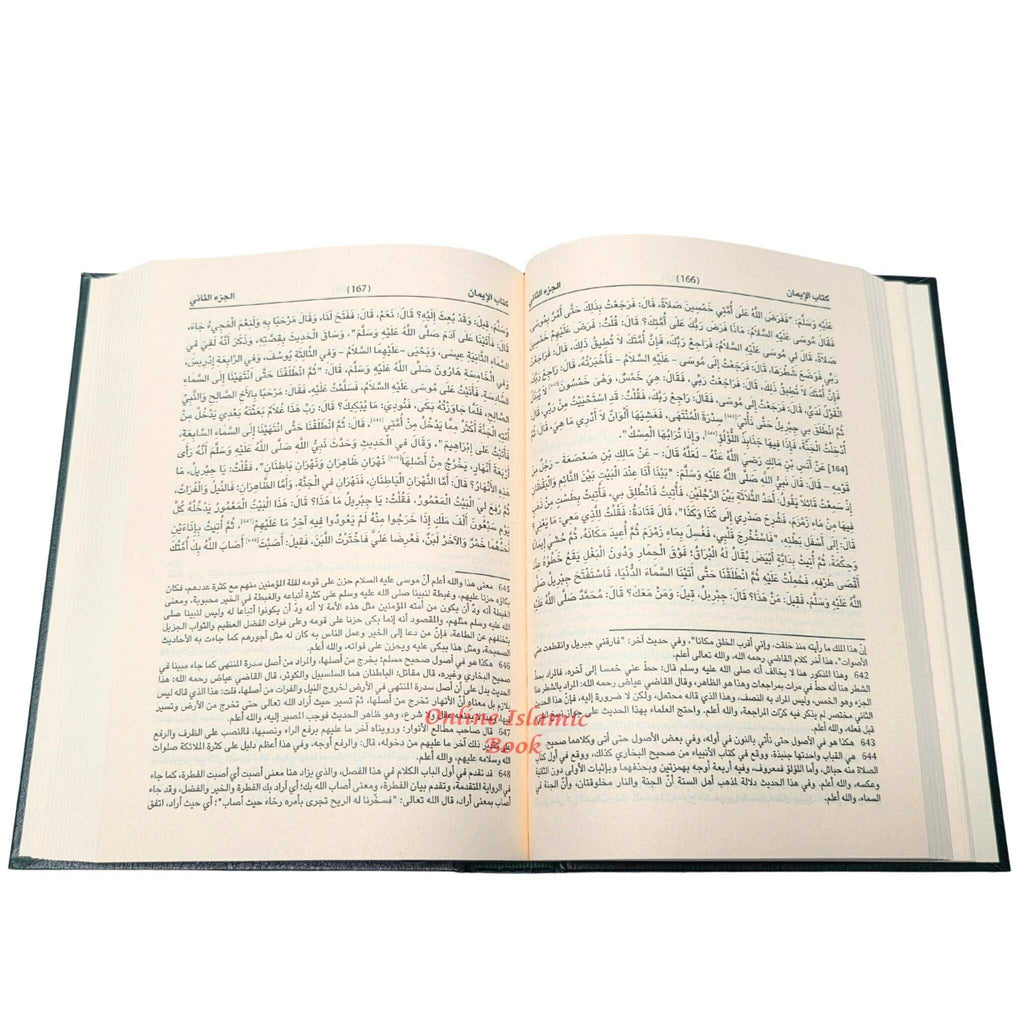 كتاب الإيمان (166) الجزء الثاني
عَلَيْهِ وَسَلَّمَ: "فَفَرَضَ اللَّهُ عَلَى أُمَّتِي خَمْسِينَ صَلَاةً، قَالَ: فَرَجَعْتُ بِذَلِكَ حَتَّى أَمُرَّ بِمُوسَى
فَقَالَ مُوسَى عَلَيْهِ السَّلَامُ: مَاذَا فَرَضَ رَبُّكَ عَلَى أُمَّتِكَ؟ قَالَ: قُلْتُ: فَرَضَ عَلَيْهِمْ خَمْسِينَ
صَلَاةً، قَالَ لِي مُوسَى عَلَيْهِ السَّلَامُ: فَرَاجِعْ رَبَّكَ، فَإِنَّ أُمَّتَكَ لَا تُطِيقُ ذَلِكَ، قَالَ: فَرَاجَعْتُ
رَبِّي فَوَضَعَ شَطْرَهَا، قَالَ: فَرَجَعْتُ إِلَى مُوسَى – عَلَيْهِ السَّلَامُ – فَأَخْبَرْتُهُ، قَالَ: رَاجِعْ رَبَّكَ
فَإِنَّ أُمَّتَكَ لَا تُطِيقُ ذَلِكَ، قَالَ: فَرَاجَعْتُ رَبِّي، فَقَالَ: هِيَ خَمْسٌ، وَهْىَ خَمْسُونَ[642] لَا يُبَدَّلُ
الْقَوْلُ لَدَيَّ، قَالَ: فَرَجَعْتُ إِلَى مُوسَى، فَقَالَ: رَاجِعْ رَبَّكَ، فَقُلْتُ: قَدِ اسْتَحْيَيْتُ مِنْ رَبِّي، قَالَ:
ثُمَّ انْطَلَقَ بِي جِبْرِيلُ حَتَّى نَأْتِيَ[643] سِدْرَةَ الْمُنْتَهَى، فَغَشِيَهَا أَلْوَانٌ لَا أَدْرِي مَا هِيَ، قَالَ: ثُمَّ
أُدْخِلْتُ الْجَنَّةَ، فَإِذَا فِيهَا جَنَابِذُ اللُّؤْلُؤِ[644]، وَإِذَا تُرَابُهَا الْمِسْكُ".
[164] عَنْ أَنَسِ بْنِ مَالِكٍ رَضِيَ اللَّهُ عَنْهُ – لَعَلَّهُ قَالَ: – عَنْ مَالِكِ بْنِ صَعْصَعَةَ – رَجُلٌ مِنْ
قَوْمِهِ – قَالَ: قَالَ نَبِيُّ اللَّهِ صَلَّى اللَّهُ عَلَيْهِ وَسَلَّمَ: "بَيْنَا أَنَا عِنْدَ الْبَيْتِ بَيْنَ النَّائِمِ وَالْيَقْظَانِ
إِذْ سَمِعْتُ قَائِلًا يَقُولُ: أَحَدُ الثَّلَاثَةِ بَيْنَ الرَّجُلَيْنِ، فَأُتِيتُ فَانْطُلِقَ بِي، فَأُتِيتُ بِطَسْتٍ مِنْ ذَهَبٍ
فِيهَا مِنْ مَاءِ زَمْزَمَ، فَشُرِحَ صَدْرِي إِلَى كَذَا وَكَذَا"، قَالَ قَتَادَةُ: فَقُلْتُ لِلَّذِي مَعِي: مَا يَعْنِي
قَالَ: إِلَى أَسْفَلِ بَطْنِهِ، "فَاسْتُخْرِجَ قَلْبِي، فَغُسِلَ بِمَاءِ زَمْزَمَ ثُمَّ أُعِيدَ مَكَانَهُ، ثُمَّ حُشِيَ إِيمَانًا
وَحِكْمَةً، ثُمَّ أُتِيتُ بِدَابَّةٍ أَبْيَضَ يُقَالُ لَهُ الْبُرَاقُ: فَوْقَ الْحِمَارِ وَدُونَ الْبَغْلِ يَقَعُ خَطْوُهُ عِنْدَ
أَقْصَى طَرْفِهِ، فَحُمِلْتُ عَلَيْهِ ثُمَّ انْطَلَقْنَا حَتَّى أَتَيْنَا السَّمَاءَ الدُّنْيَا، فَاسْتَفْتَحَ جِبْرِيلُ صَلَّى
اللَّهُ عَلَيْهِ وَسَلَّمَ، فَقِيلَ: مَنْ هَذَا؟ قَالَ: جِبْرِيلُ، قِيلَ: وَمَنْ مَعَكَ؟ قَالَ: مُحَمَّدٌ صَلَّى اللَّهُ عَلَيْهِ
إنّ هذا الملك ما رأيته منذ خلقت، وإني أقرب الخلق مكانا"، وفي حديث آخر: "فارقني جبريل وانقطعت عني
الأصوات"، هذا آخر كلام القاضي رحمه الله، والله تعالى أعلم.
642 وهذا المذكور هنا لا يخالف أنه صلى الله عليه وسلم قال: حط عني خمسا إلى آخره، فالمراد بحط
الشطر هنا أنه حط في مرات بمراجعات وهذا هو الظاهر، وقال القاضي عياض رحمه الله: المراد بالشطر هنا
الجزء وهو الخمس، وليس المراد به النصف، وهذا الذي قاله محتمل، ولكن لا ضرورة إليه، فإنّ هذا الحديث
الثاني مختصر لم يذكر فيه كرّات المراجعة، والله أعلم. واحتج العلماء بهذا الحديث على جواز نسخ الشيء
قبل فعله، والله أعلم.
643 هكذا هو في الأصول حتى نأتي بالنون في أوله، وفي بعض الأصول حتى أتى وكلاهما صحيح
644 هي القباب واحدتها جنبذة، ووقع في كتاب الأنبياء من صحيح البخاري كذلك، ووقع في أول كتاب
الصلاة منه حبائل، وأما اللؤلؤ فمعروف، وفيه أربعة أوجه بهمزتين وبحذفهما وبإثبات الأولى دون الثانية
وعكسه، والله أعلم. وفي هذا الحديث دلالة لمذهب أهل السنة أنّ الجنة والنار مخلوقتان، وأنّ الجنة في
السماء، والله أعلم.
كتاب الإيمان (167) الجزء الثاني
وَسَلَّمَ، قِيلَ: وَقَدْ بُعِثَ إِلَيْهِ؟ قَالَ: نَعَمْ، قَالَ: فَفَتَحَ لَنَا، وَقَالَ مَرْحَبًا بِهِ وَلَنِعْمَ الْمَجِيءُ جَاءَ،
قَالَ: فَأَتَيْنَا عَلَى آدَمَ صَلَّى اللَّهُ عَلَيْهِ وَسَلَّمَ"، وَسَاقَ الْحَدِيثَ بِقِصَّتِهِ، وَذَكَرَ أَنَّهُ لَقِيَ فِي
السَّمَاءِ الثَّانِيَةِ عِيسَى، وَيَحْيَى – عَلَيْهِمَا السَّلَامُ – وَفِي الثَّالِثَةِ يُوسُفَ، وَفِي الرَّابِعَةِ إِدْرِيسَ،
وَفِي الْخَامِسَةِ هَارُونَ صَلَّى اللَّهُ عَلَيْهِ وَسَلَّمَ، قَالَ: "ثُمَّ انْطَلَقْنَا حَتَّى انْتَهَيْنَا إِلَى السَّمَاءِ
السَّادِسَةِ، فَأَتَيْتُ عَلَى مُوسَى عَلَيْهِ السَّلَامُ، فَسَلَّمْتُ عَلَيْهِ، فَقَالَ: مَرْحَبًا بِالْأَخِ الصَّالِحِ وَالنَّبِيِّ
الصَّالِحِ، فَلَمَّا جَاوَزْتُهُ بَكَى، فَنُودِيَ: مَا يُبْكِيكَ؟ قَالَ: رَبِّ هَذَا غُلَامٌ بَعَثْتَهُ بَعْدِي يَدْخُلُ مِنْ
أُمَّتِهِ الْجَنَّةَ أَكْثَرُ مِمَّا يَدْخُلُ مِنْ أُمَّتِي[645]، قَالَ: ثُمَّ انْطَلَقْنَا حَتَّى انْتَهَيْنَا إِلَى السَّمَاءِ السَّابِعَةِ،
فَأَتَيْتُ عَلَى إِبْرَاهِيمَ"، وَقَالَ فِي الْحَدِيثِ وَحَدَّثَ نَبِيُّ اللَّهِ صَلَّى اللَّهُ عَلَيْهِ وَسَلَّمَ أَنَّهُ رَأَى
أَرْبَعَةَ أَنْهَارٍ، يَخْرُجُ مِنْ أَصْلِهَا[646] نَهْرَانِ ظَاهِرَانِ وَنَهْرَانِ بَاطِنَانِ"، فَقُلْتُ: يَا جِبْرِيلُ، مَا
هَذِهِ الْأَنْهَارُ؟ قَالَ: أَمَّا النَّهْرَانِ الْبَاطِنَانِ، فَنَهْرَانِ فِي الْجَنَّةِ، وَأَمَّا الظَّاهِرَانِ: فَالنِّيلُ وَالْفُرَاتُ،
ثُمَّ رُفِعَ لِي الْبَيْتُ الْمَعْمُورُ، فَقُلْتُ: يَا جِبْرِيلُ مَا هَذَا؟ قَالَ: هَذَا الْبَيْتُ الْمَعْمُورُ يَدْخُلُهُ كُلَّ
يَوْمٍ سَبْعُونَ أَلْفَ مَلَكٍ إِذَا خَرَجُوا مِنْهُ لَمْ يَعُودُوا فِيهِ آخِرُ مَا عَلَيْهِمْ[647]، ثُمَّ أُتِيتُ بِإِنَاءَيْنِ
أَحَدُهُمَا خَمْرٌ وَالْآخَرُ لَبَنٌ، فَعُرِضَا عَلَيَّ فَاخْتَرْتُ اللَّبَنَ، فَقِيلَ: أَصَبْتَ[648] أَصَابَ اللَّهُ بِكَ أُمَّتُكَ
645 معنى هذا والله أعلم أنّ موسى عليه السلام حزن على قومه لقلة المؤمنين منهم مع كثرة عددهم، فكان
بكاؤه حزنا عليهم، وغبطة لنبينا صلى الله عليه وسلم على كثرة أتباعه والغبطة في الخير محبوبة، ومعنى
الغبطة أنه ودّ أن يكون من أمته المؤمنين مثل هذه الأمة لا أنه ودّ أن يكونوا أتباعا له وليس لنبينا صلى
الله عليه وسلم مثلهم، والمقصود أنه إنما بكى حزنا على قومه وعلى فوات الفضل العظيم والثواب الجزيل
بتخلفهم عن الطاعة، فإنّ من دعا إلى الخير وعمل الناس به كان له مثل أجورهم كما جاءت به الأحاديث
الصحيحة، ومثل هذا يبكى عليه ويحزن على فواته، والله أعلم.
646 هكذا هو في أصول صحيح مسلم: يخرج من أصلها، والمراد من أصل سدرة المنتهى كما جاء مبينا في
صحيح البخاري وغيره، قال مقاتل: الباطنان هما السلسبيل والكوثر، قال القاضي عياض رحمه الله: هذا
الحديث يدل على أن أصل سدرة المنتهى في الأرض لخروج النيل والفرات من أصلها، قلت: هذا الذي قاله ليس
بلازم بل معناه أنّ الأنهار تخرج من أصلها، ثم تسير حيث أراد الله تعالى حتى تخرج من الأرض وتسير
شرع، وهو ظاهر الحديث فوجب المصير إليه، والله أعلم.
647 قال صاحب مطالع الأنوار: ورويناه آخر ما عليهم برفع الراء ونصبها، فالنصب على الظرف والرفع
على تقدير ذلك آخر ما عليهم من دخوله، قال: والرفع أوجه، وفي هذا أعظم دليل على كثرة الملائكة صلوات
الله وسلامه عليهم، والله أعلم.
648 قد تقدم في أول الباب الكلام في هذا الفصل، والذي يزاد هنا معنى أصبت أي أصبت الفطرة، كما جاء
في الرواية المتقدمة، وتقدم بيان الفطرة، ومعنى أصاب الله بك: أي أراد بك الفطرة والخير والفضل، وقد جاء
أصاب بمعنى أراد، قال الله تعالى: "فسخّرنا له الريح تجرى بأمره رخاء حيث أصاب": أي حيث أراد، اتفق
Online Islamic
Book